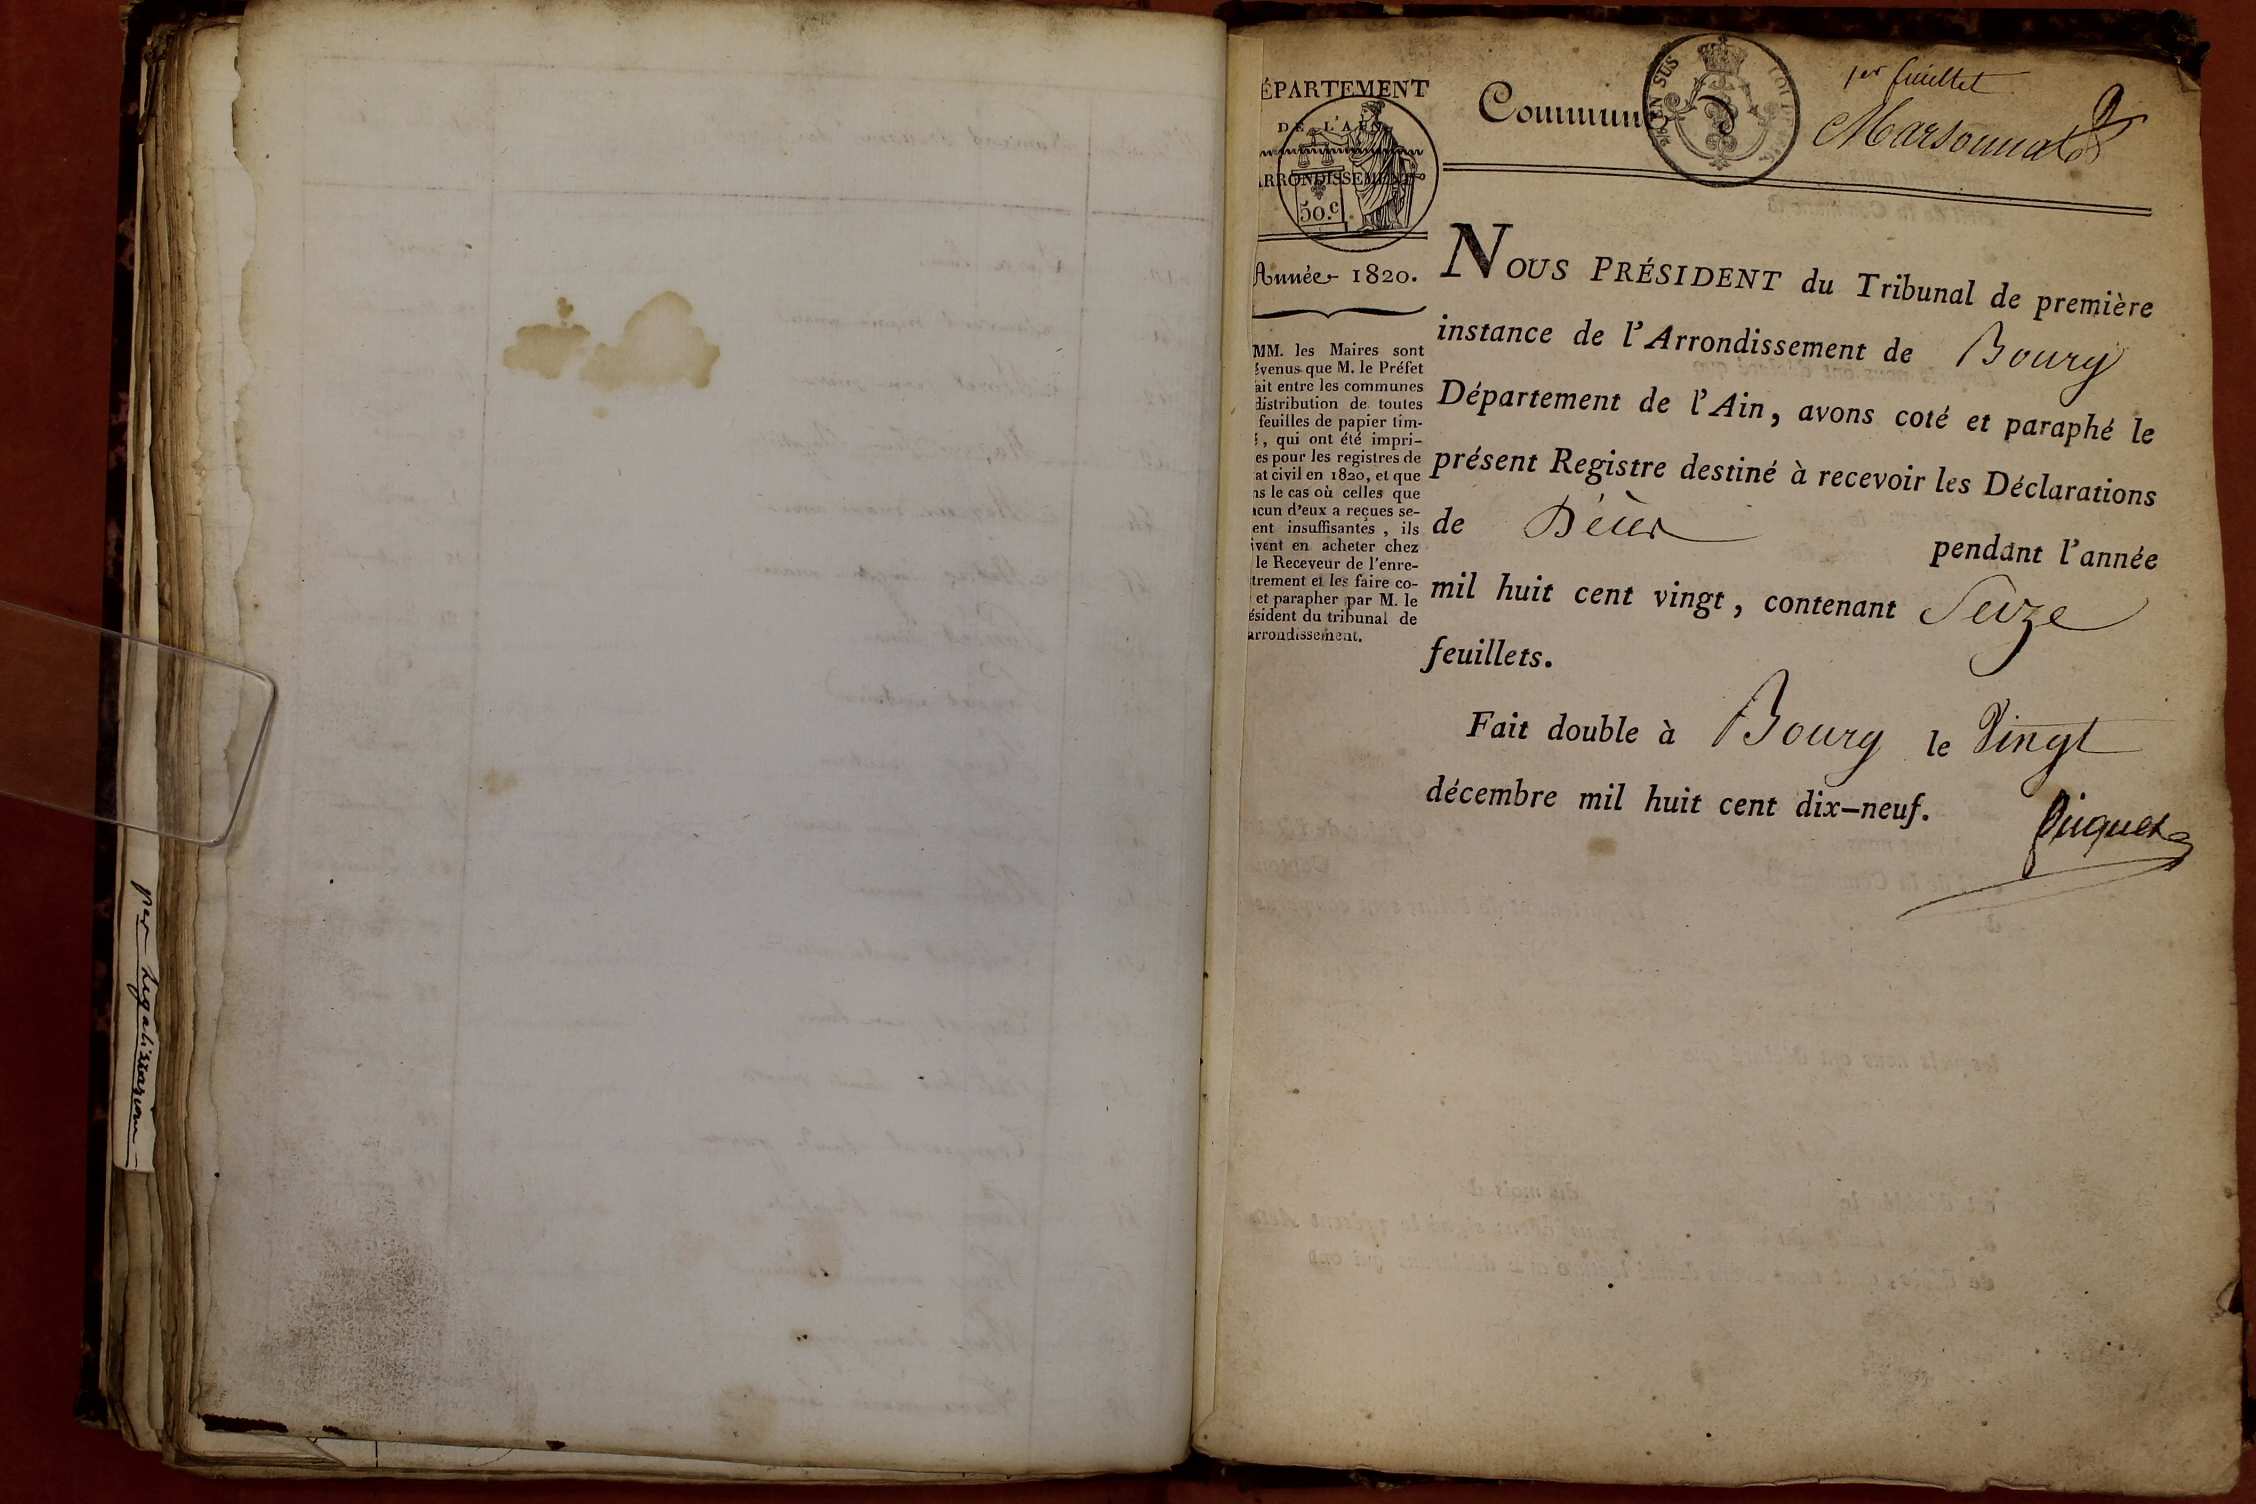 per Legalisation
ÉPARTEMENT
DE L'AIN
ARRONDISSEMENT
50.c
Année 1820.
MM. les Maires sont
évenus que M. le Préfet
ait entre les communes
distribution de toutes
feuilles de papier tim-
é, qui ont été impri-
es pour les registres de
at civil en 1820, et que
ns le cas où celles que
acun d'eux a reçues se-
ent insuffisantes, ils
ivent en acheter chez
le Receveur de l'enre-
trement et les faire co-
et parapher par M. le
ésident du tribunal de
arrondissement.
1er feuillet
Commun Marsonnas
EN SUS
NOUS PRÉSIDENT du Tribunal de première
instance de l'Arrondissement de Bourg
Département de l'Ain, avons coté et paraphé le
présent Registre destiné à recevoir les Déclarations
de Décès pendant l'année
mil huit cent vingt, contenant Seize
feuillets.
Fait double à Bourg le Vingt
décembre mil huit cent dix-neuf.
Piquet